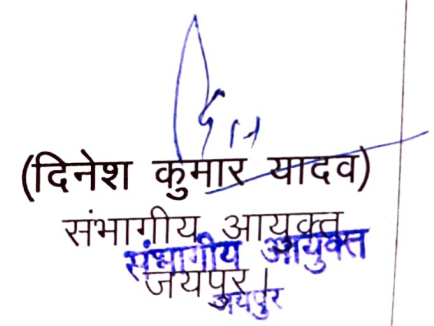 (दिनेश कुमार यादव)
संभागीय आयुक्त
संभागीय आयुक्त
जयपुर।
जयपुर